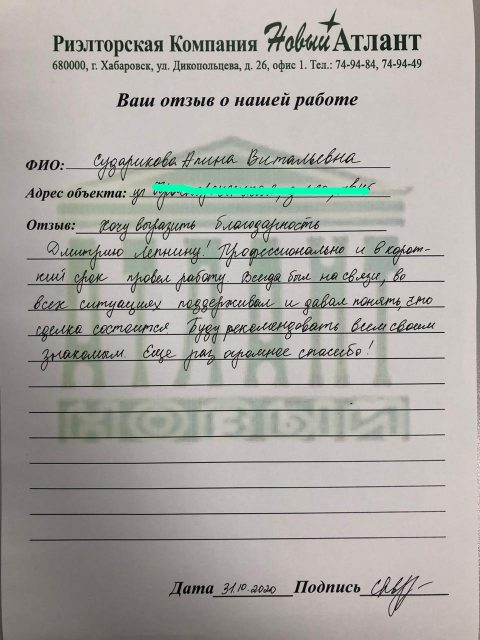 Риэлторская Компания Новый Атлант
680000, г. Хабаровск, ул. Дикопольцева, д. 26, офис 1. Тел.: 74-94-84, 74-94-49
Ваш отзыв о нашей работе
ФИО: Сударикова Алина Витальевна
Адрес объекта: ул
Отзыв: Хочу выразить благодарность
Дмитрию Лепнину! Профессионально и в корот-
кий срок провел работу. Всегда был на связи, во
всех ситуациях поддерживал и давал понять, что
сделка состоится. Буду рекомендовать всем своим
знакомым. Еще раз огромное спасибо!
АТЛАНТ
НОВЫЙ
Дата 31.10.2020 Подпись